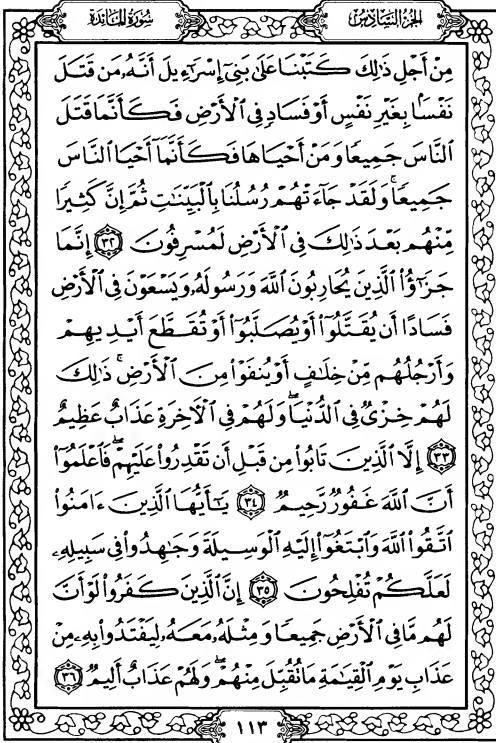 سُورَةُ المَائدَة
الجزء السّادس
مِنْ أَجْلِ ذَٰلِكَ كَتَبْنَا عَلَىٰ بَنِىٓ إِسْرَٰٓءِيلَ أَنَّهُۥ مَن قَتَلَ
نَفْسًۢا بِغَيْرِ نَفْسٍ أَوْ فَسَادٍ فِى ٱلْأَرْضِ فَكَأَنَّمَا قَتَلَ
ٱلنَّاسَ جَمِيعًا وَمَنْ أَحْيَاهَا فَكَأَنَّمَآ أَحْيَا ٱلنَّاسَ
جَمِيعًا ۚ وَلَقَدْ جَآءَتْهُمْ رُسُلُنَا بِٱلْبَيِّنَٰتِ ثُمَّ إِنَّ كَثِيرًا
مِّنْهُم بَعْدَ ذَٰلِكَ فِى ٱلْأَرْضِ لَمُسْرِفُونَ ٣٢ إِنَّمَا
جَزَٰٓؤُا۟ ٱلَّذِينَ يُحَارِبُونَ ٱللَّهَ وَرَسُولَهُۥ وَيَسْعَوْنَ فِى ٱلْأَرْضِ
فَسَادًا أَن يُقَتَّلُوٓا۟ أَوْ يُصَلَّبُوٓا۟ أَوْ تُقَطَّعَ أَيْدِيهِمْ
وَأَرْجُلُهُم مِّنْ خِلَٰفٍ أَوْ يُنفَوْا۟ مِنَ ٱلْأَرْضِ ۚ ذَٰلِكَ
لَهُمْ خِزْىٌ فِى ٱلدُّنْيَا ۖ وَلَهُمْ فِى ٱلْأَخِرَةِ عَذَابٌ عَظِيمٌ
٣٣ إِلَّا ٱلَّذِينَ تَابُوا۟ مِن قَبْلِ أَن تَقْدِرُوا۟ عَلَيْهِمْ ۖ فَٱعْلَمُوٓا۟
أَنَّ ٱللَّهَ غَفُورٌ رَّحِيمٌ ٣٤ يَٰٓأَيُّهَا ٱلَّذِينَ ءَامَنُوا۟
ٱتَّقُوا۟ ٱللَّهَ وَٱبْتَغُوٓا۟ إِلَيْهِ ٱلْوَسِيلَةَ وَجَٰهِدُوا۟ فِى سَبِيلِهِۦ
لَعَلَّكُمْ تُفْلِحُونَ ٣٥ إِنَّ ٱلَّذِينَ كَفَرُوا۟ لَوْ أَنَّ
لَهُم مَّا فِى ٱلْأَرْضِ جَمِيعًا وَمِثْلَهُۥ مَعَهُۥ لِيَفْتَدُوا۟ بِهِۦ مِنْ
عَذَابِ يَوْمِ ٱلْقِيَٰمَةِ مَا تُقُبِّلَ مِنْهُمْ ۖ وَلَهُمْ عَذَابٌ أَلِيمٌ ٣٦
١١٣